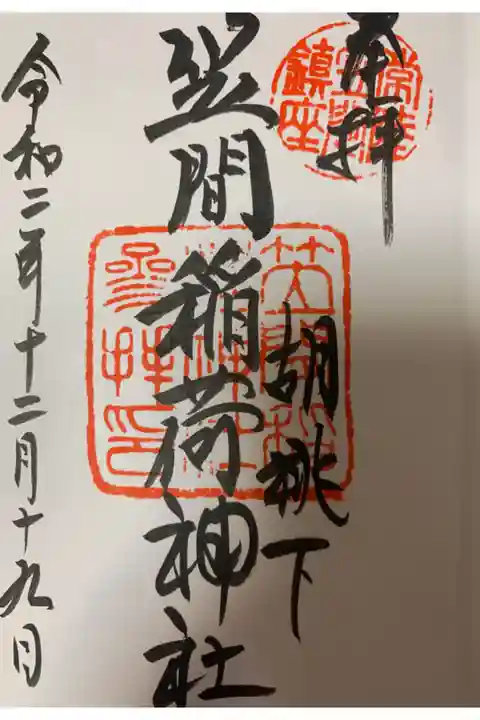 奉拝
胡桃下
笠間稲荷神社
令和二年十二月十九日
常陸国笠間鎮座
笠間稲荷神社参拝之印